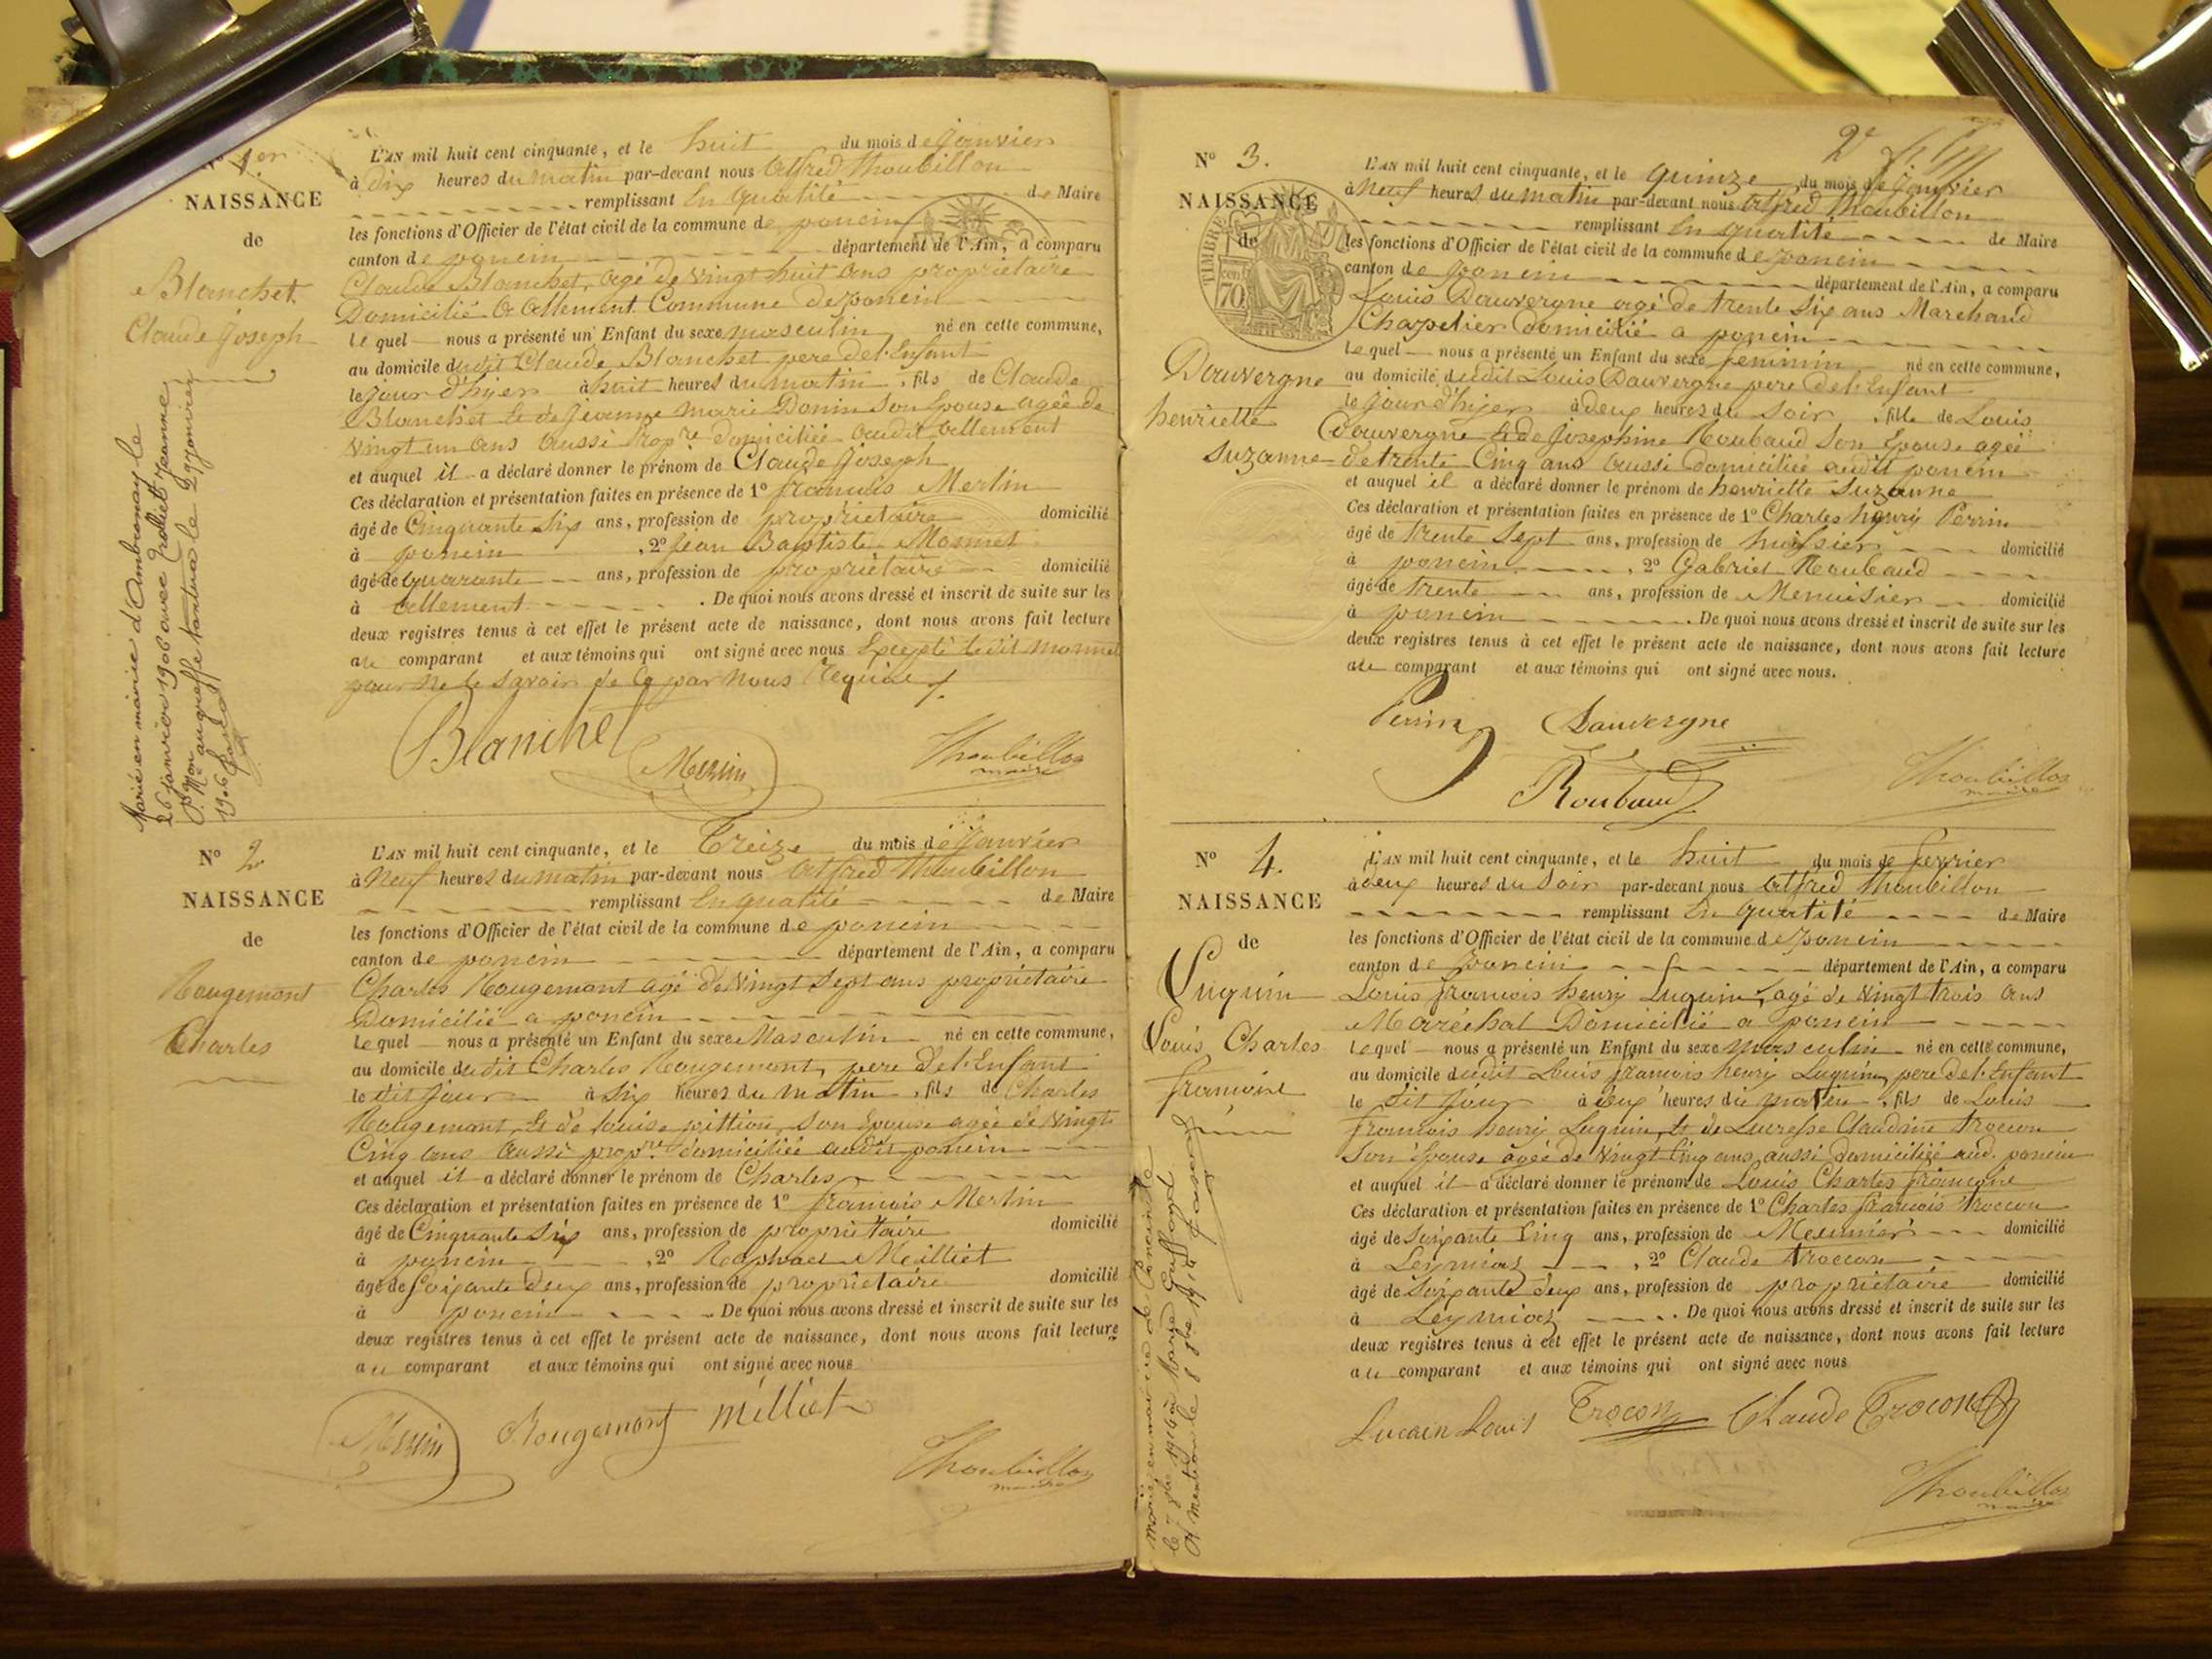 N° 1.er
NAISSANCE
de
Blanchet
Claude Joseph
L'AN mil huit cent cinquante, et le huit du mois de janvier
à dix heures du matin par-devant nous Alfred Thoubillon
remplissant En qualité de Maire
les fonctions d'Officier de l'état civil de la commune de poncin
canton de poncin département de l'Ain, a comparu
Claude Blanchet, agé de vingt huit ans propriétaire
Domicilié a allement Commune de poncin
le quel nous a présenté un Enfant du sexe masculin né en cette commune,
au domicile dudit Claude Blanchet pere de l'Enfant
le jour d'hyer à huit heures du matin, fils de Claude
Blanchet et de jeanne marie Donin son Epouse agée de
vingt un ans aussi prop.re domiciliée audit allement
et auquel il a déclaré donner le prénom de Claude Joseph
Ces déclaration et présentation faites en présence de 1° francois Merlin
âgé de Cinquante Six ans, profession de propriétaire domicilié
à poncin, 2° Jean Baptiste Monnet
âgé de quarante ans, profession de propriétaire domicilié
à allement. De quoi nous avons dressé et inscrit de suite sur les
deux registres tenus à cet effet le présent acte de naissance, dont nous avons fait lecture
au comparant et aux témoins qui ont signé avec nous Excepté ledit monnet
pour ne le savoir de ce par nous Requis
Blanchet
Merlin
Thoubillon
maire
Marié en mairie d'Ambronay le
26 janvier 1906 avec Joliett Jeanne
P. Mon au greffe Nantua le 29 janvier
1906
N° 2
NAISSANCE
de
Rougemont
Charles
L'AN mil huit cent cinquante, et le Treize du mois de janvier
à Neuf heures du matin par-devant nous Alfred Thoubillon
remplissant En qualité de Maire
les fonctions d'Officier de l'état civil de la commune de poncin
canton de poncin département de l'Ain, a comparu
Charles Rougemont agé de vingt Sept ans propriétaire
Domicilié a poncin
lequel nous a présenté un Enfant du sexe Masculin né en cette commune,
au domicile dudit Charles Rougemont, pere de l'Enfant
le dit jour à Six heures du matin, fils de Charles
Rougemont, et de louise pittion, son Epouse agée de vingt
Cinq ans aussi prop.re domiciliée audit poncin
et auquel il a déclaré donner le prénom de Charles
Ces déclaration et présentation faites en présence de 1° francois Merlin
âgé de Cinquante Six ans, profession de propriétaire domicilié
à poncin, 2° Raphael Milliet
âgé de Soixante deux ans, profession de propriétaire domicilié
à poncin. De quoi nous avons dressé et inscrit de suite sur les
deux registres tenus à cet effet le présent acte de naissance, dont nous avons fait lecture
au comparant et aux témoins qui ont signé avec nous
Merlin Rougemont Milliet
Thoubillon
maire
2e
N° 3.
NAISSANCE
de
TIMBRE
70
Dauvergne
henriette
Suzanne
L'AN mil huit cent cinquante, et le quinze du mois de janvier
à Neuf heures du matin par-devant nous Alfred Thoubillon
remplissant En qualité de Maire
les fonctions d'Officier de l'état civil de la commune de poncin
canton de poncin département de l'Ain, a comparu
Louis Dauvergne agé de trente Six ans Marchand
Chapelier domicilié a poncin
Lequel nous a présenté un Enfant du sexe feminin né en cette commune,
au domicile dudit Louis Dauvergne pere de l'Enfant
le jour d'hyer à deux heures du Soir, fille de Louis
Dauvergne et de Josephine Roubaud Son Epouse agée
de trente Cinq ans aussi domiciliée audit poncin
et auquel il a déclaré donner le prénom de henriette Suzanne
Ces déclaration et présentation faites en présence de 1° Charles henry Perrin
âgé de trente Sept ans, profession de huissier domicilié
à poncin, 2° Gabriel Roubaud
âgé de trente ans, profession de Menuisier domicilié
à poncin. De quoi nous avons dressé et inscrit de suite sur les
deux registres tenus à cet effet le présent acte de naissance, dont nous avons fait lecture
au comparant et aux témoins qui ont signé avec nous.
Perrin Dauvergne
Roubaud
Thoubillon
maire
N° 4.
NAISSANCE
de
Luguin
Louis Charles
françois
L'AN mil huit cent cinquante, et le huit du mois de fevrier
à deux heures du Soir par-devant nous Alfred Thoubillon
remplissant En qualité de Maire
les fonctions d'Officier de l'état civil de la commune de poncin
canton de poncin département de l'Ain, a comparu
Louis francois henry Luguin, agé de vingt trois ans
Maréchal Domicilié a poncin
Lequel nous a présenté un Enfant du sexe masculin né en cette commune,
au domicile dudit Louis francois henry Luguin, pere de l'Enfant
le dit jour à deux heures du matin, fils de Louis
francois henry Luguin, et de Lucresse Claudine trocon
Son Epouse agée de vingt Cinq ans, aussi domiciliée aud. poncin
et auquel il a déclaré donner le prénom de Louis Charles françois
Ces déclaration et présentation faites en présence de 1° Charles francois trocon
âgé de Soixante Cinq ans, profession de Meunier domicilié
à Leymiaz, 2° Claude trocon
âgé de Soixante deux ans, profession de propriétaire domicilié
à Leymiaz. De quoi nous avons dressé et inscrit de suite sur les
deux registres tenus à cet effet le présent acte de naissance, dont nous avons fait lecture
au comparant et aux témoins qui ont signé avec nous
Lucain Louis Trocon Claude Trocon
Thoubillon
maire